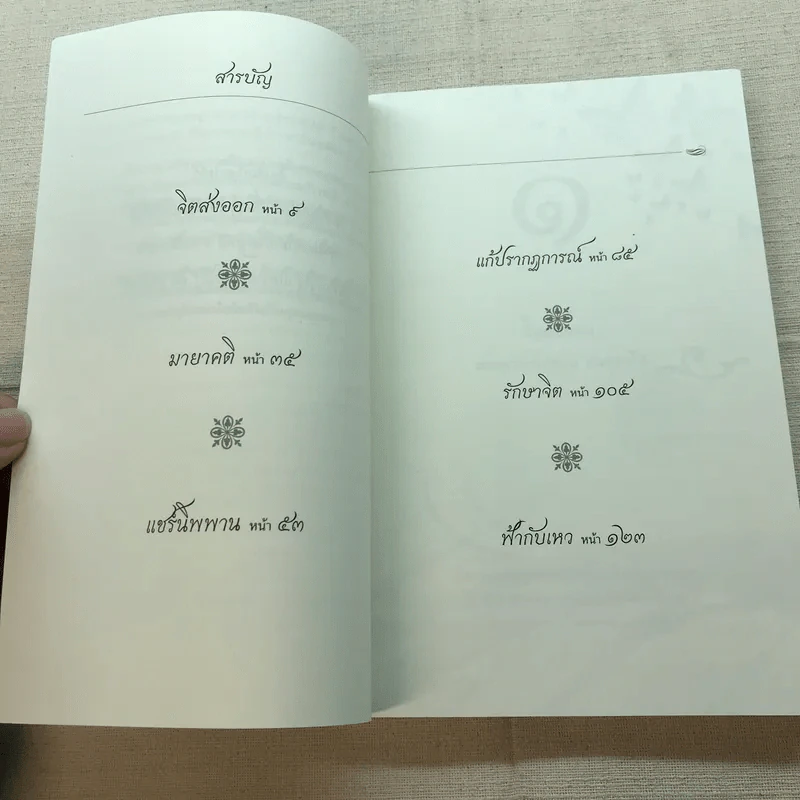 สารบัญ
จิตส่งออก หน้า ๙
มายาคติ หน้า ๓๕
แชร์นิพพาน หน้า ๕๓
แก้ปรากฏการณ์ หน้า ๘๕
รักษาจิต หน้า ๑๐๕
ฟ้ากับเหว หน้า ๑๒๓